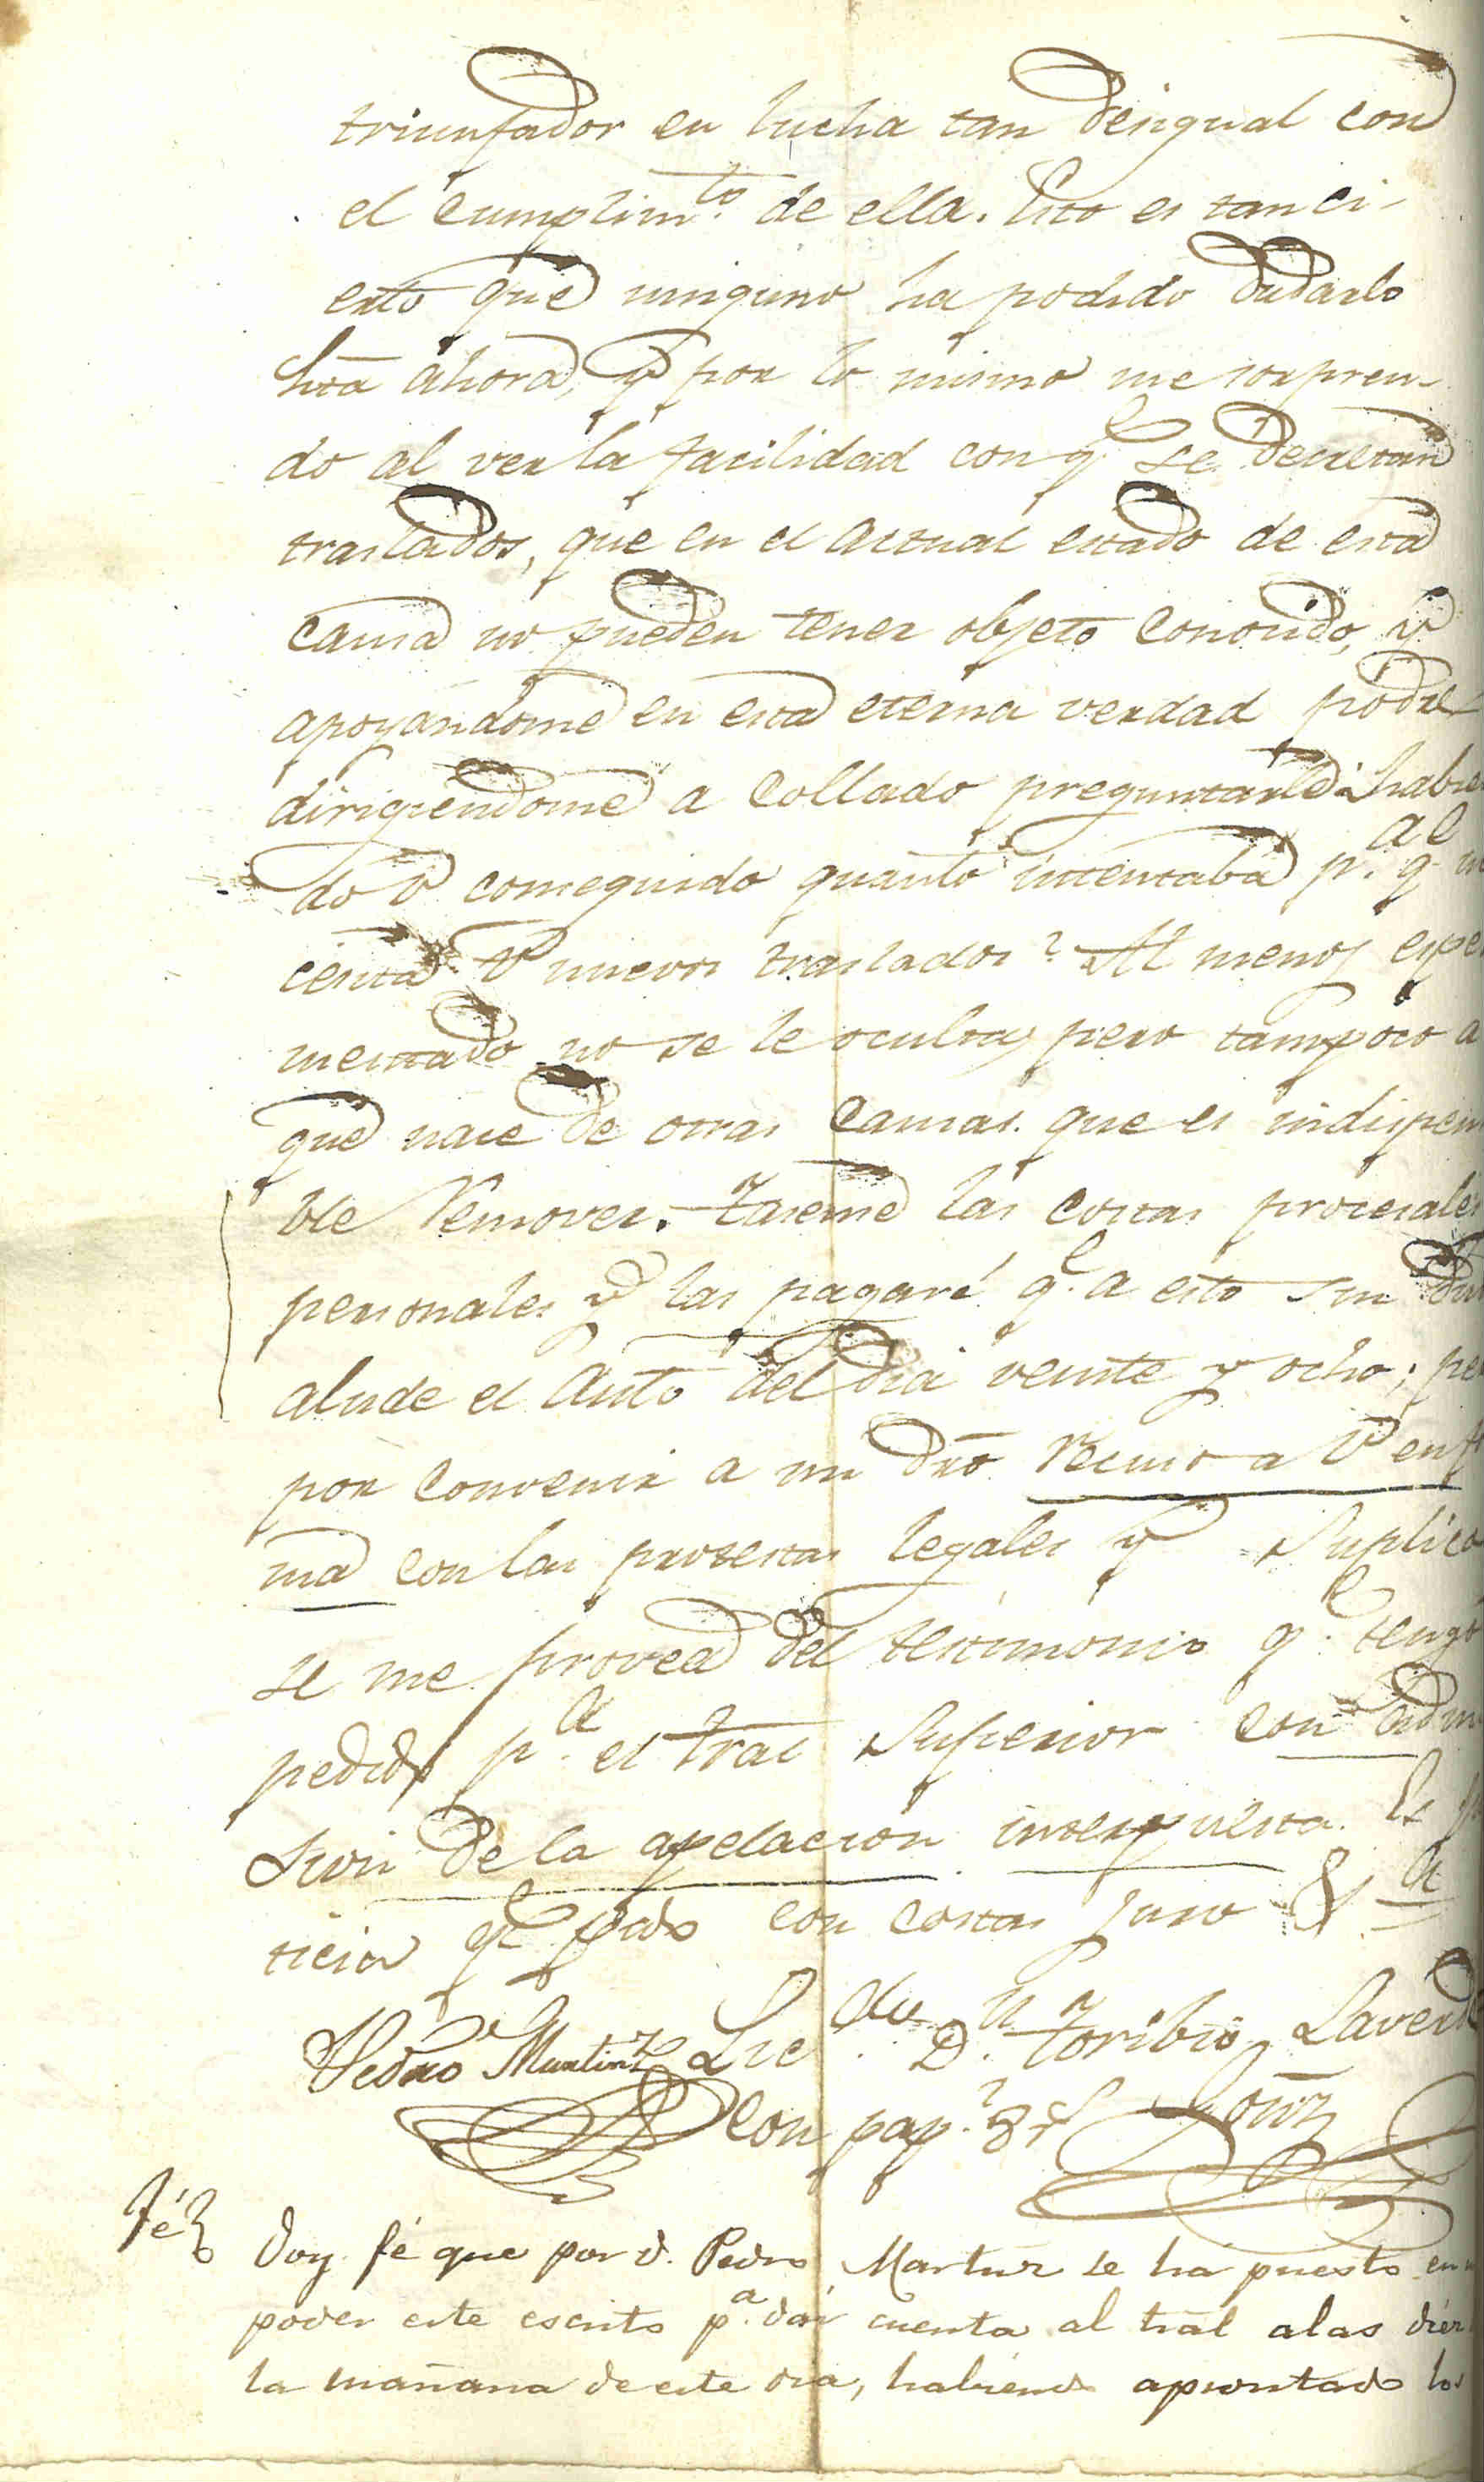 triunfador en lucha tan desigual con
el cumplimto. de ella. Esto es tan ci-
erto que ninguno ha podido dudarlo
hta ahora, y por lo mismo me sorpren-
do al ver la facilidad con qe se decretan
traslados, que en el actual estado de esta
causa no pueden tener objeto conosido, y
apoyandome en esta eterna verdad podre
dirigiendome a Collado preguntarle: habien
do V. conseguido quanto intentaba pa. qe
cesita V nuevos traslados? Al menos espe
mentado no se le oculta, pero tampoco a
que nace de otras causas que es indispen
ble remover. Taseme las costas procesales
personales y las pagaré qe. a esto sin du
alude el auto del dia veinte y ocho; pe
por convenir a mi dro recuso a V en f
ma con las protestas legales y Suplico
se me provea del testimonio qe. tengo
pedido pa. el tral Superior con adm
sion de la apelacion interpuesta. Es
ticia qe pido con costas juro &
Pedro Martinz Licdo. Dn. Toribio Laverd
Con pap.
Fé Doy fé que por d. Pedro Martinz se ha puesto en
poder este escrito pa. dar cuenta al tral alas diez
la mañana de este dia, habiendo aprontado los